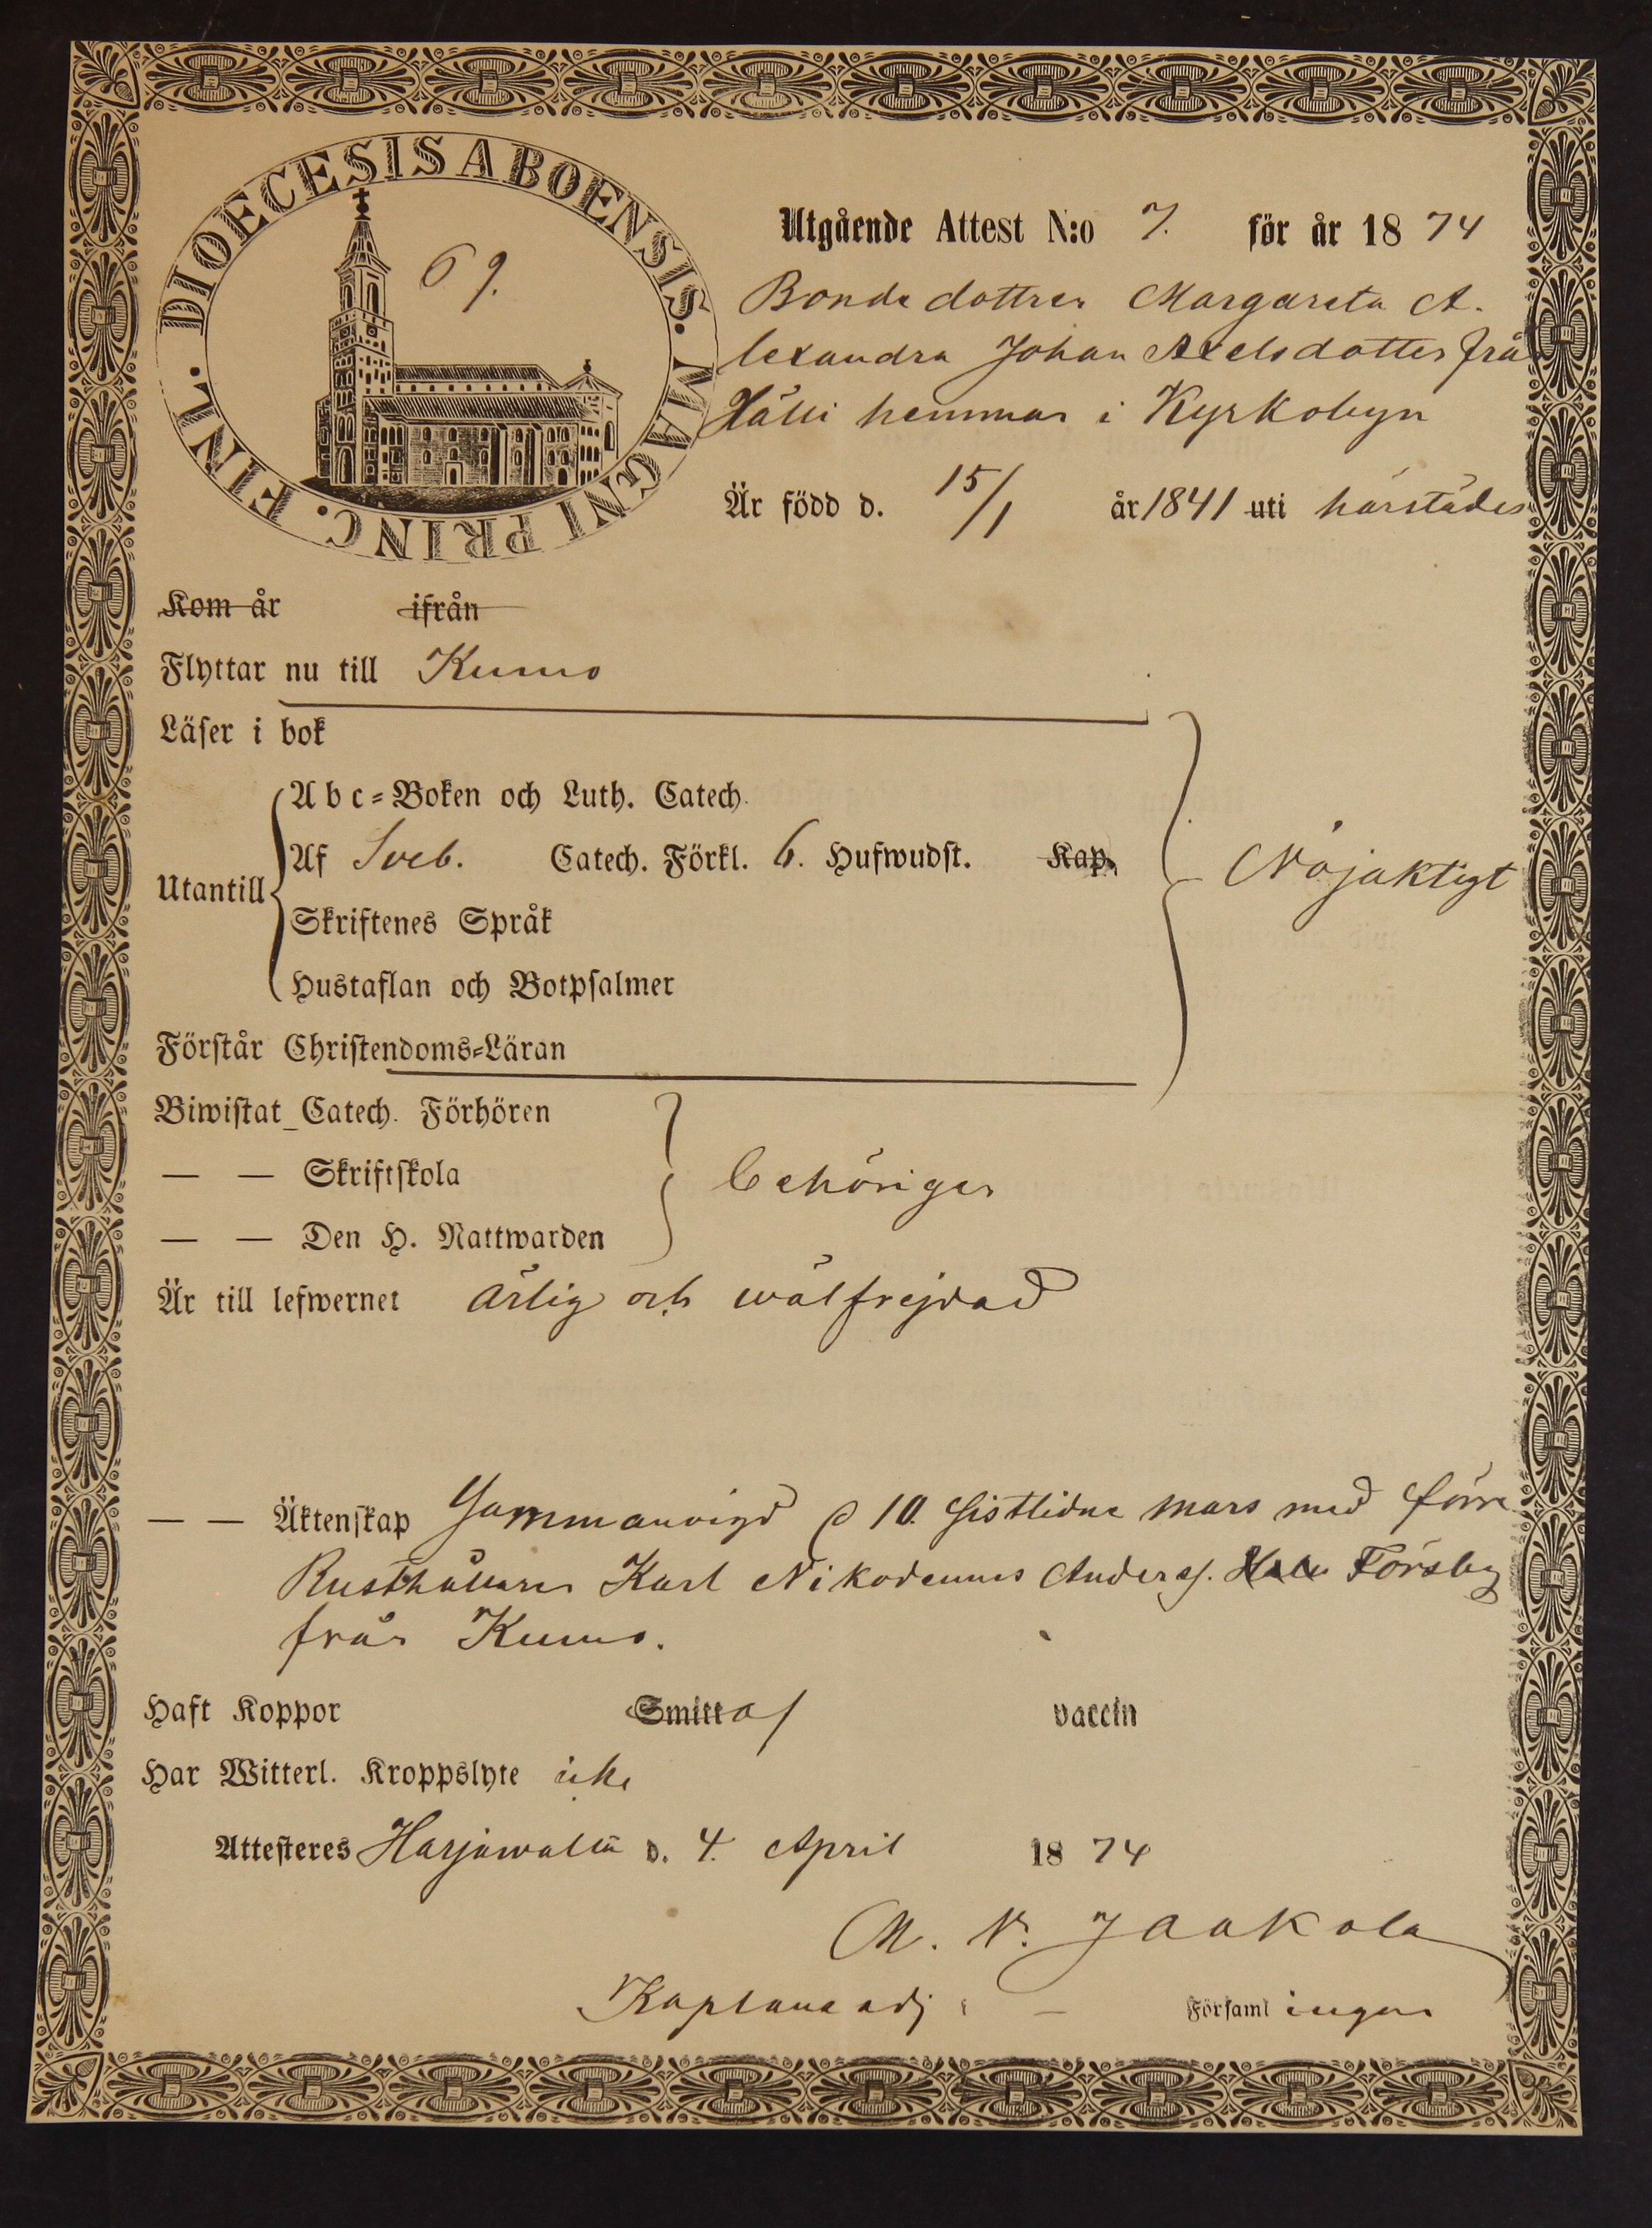 DIOECESIS ABOENSIS. MAGNI PRINC. FINL.
69.
Utgående Attest N:o 7. för år 1874
Bonde dottren Margareta A-
lexandra Johan Axelsdotter från
Hälli hemman i Kyrkobyn
Är född d. 15/1 år 1841 uti härstädes
Kom år ifrån
Flyttar nu till Kumo
Läser i bok
Abc-Boken och Luth. Catech.
Utantill Af Sveb. Catech. Förkl. 6. Hufwudst. Kap.
Nöjaktigt
Skriftenes Språk
Hustaflan och Botpsalmer
Förstår Christendoms-Läran
Biwistat Catech. Förhören
— — Skriftskola behörigen
— — Den H. Nattwarden
Är till lefwernet ärlig och wälfrejdad
— — Äktenskap Sammanvigd d 10. sistlidne mars med förre
Rusthållaren Karl Nikodemus Anders. Försby
från Kumo.
Haft Koppor Smitta vaccin
Har Witterl. Kroppslyte icke
Attesteres Harjawalta d. 4. April 1874
M. N. Jaakola
Kaplans adj i — Församlingen